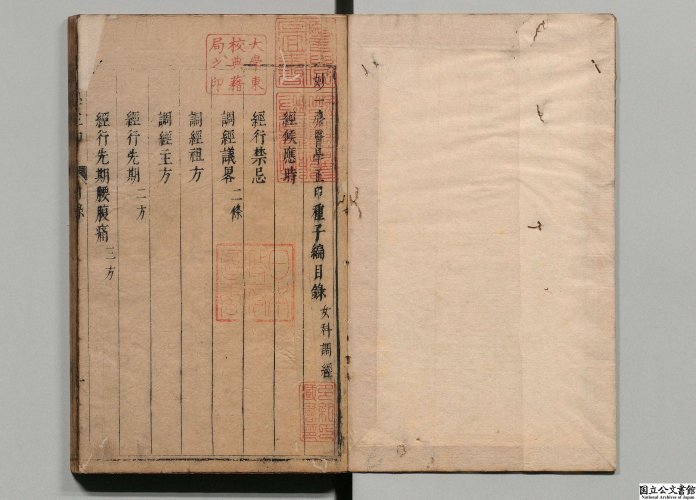 妙一齋醫學正印種子編目錄 女科調經
經候應時
經行禁忌
調經議畧 二條
調經祖方
調經主方
經行先期 二方
經行先期腰腹痛 三方
目錄
大學東
校典籍
局之印
日本
政府
圖書
国立公文書館
National Archives of Japan